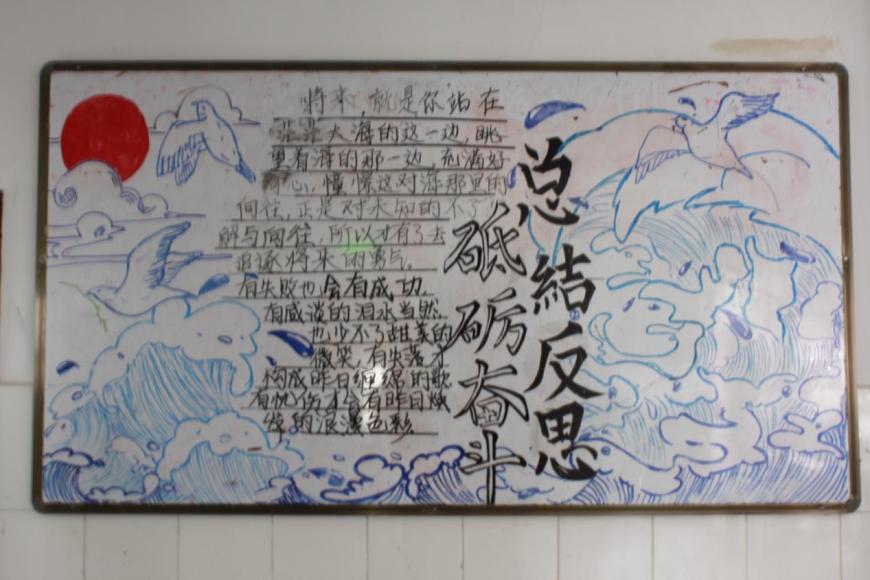 总結反思
砥砺奋斗
将来,就是你站在
茫茫大海的这一边,眺
望着海的那一边,充满好
奇心,憧憬这对海那里的
向往,正是对未知的不了
解与向往,所以才有了去
追逐将来的勇气。
有失败也会有成功.
有咸淡的泪水当然.
也少不了甜美的
微笑,有失落才
构成昨日缠绵的歌
有忧伤才会有昨日
的浪漫色彩